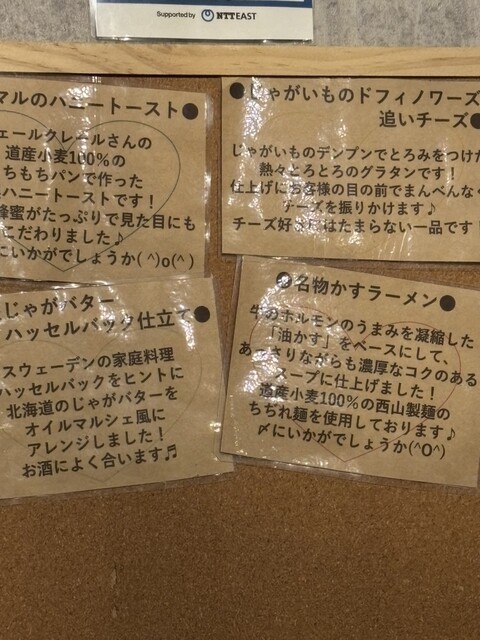 Supported by NTT EAST
マルのハニートースト●
ェールクレールさんの
道産小麦100%の
ちもちパンで作った
ハニートーストです！
蜂蜜がたっぷりで見た目にも
こだわりました♪
にいかがでしょうか( ^)o(^ )
●じゃがいものドフィノワーズ
追いチーズ●
じゃがいものデンプンでとろみをつけた
熱々とろとろのグラタンです！
仕上げにお客様の目の前でまんべんなく
チーズを振りかけます♪
チーズ好きにはたまらない一品です！
じゃがバター
ハッセルバック仕立て●
スウェーデンの家庭料理
ハッセルバックをヒントに
北海道のじゃがバターを
オイルマルシェ風に
アレンジしました！
お酒によく合います♬
●名物かすラーメン●
牛のホルモンのうまみを凝縮した
「油かす」をベースにして、
あっさりながらも濃厚なコクのある
スープに仕上げました！
道産小麦100%の西山製麺の
ちぢれ麺を使用しております♪
〆にいかがでしょうか(^O^)